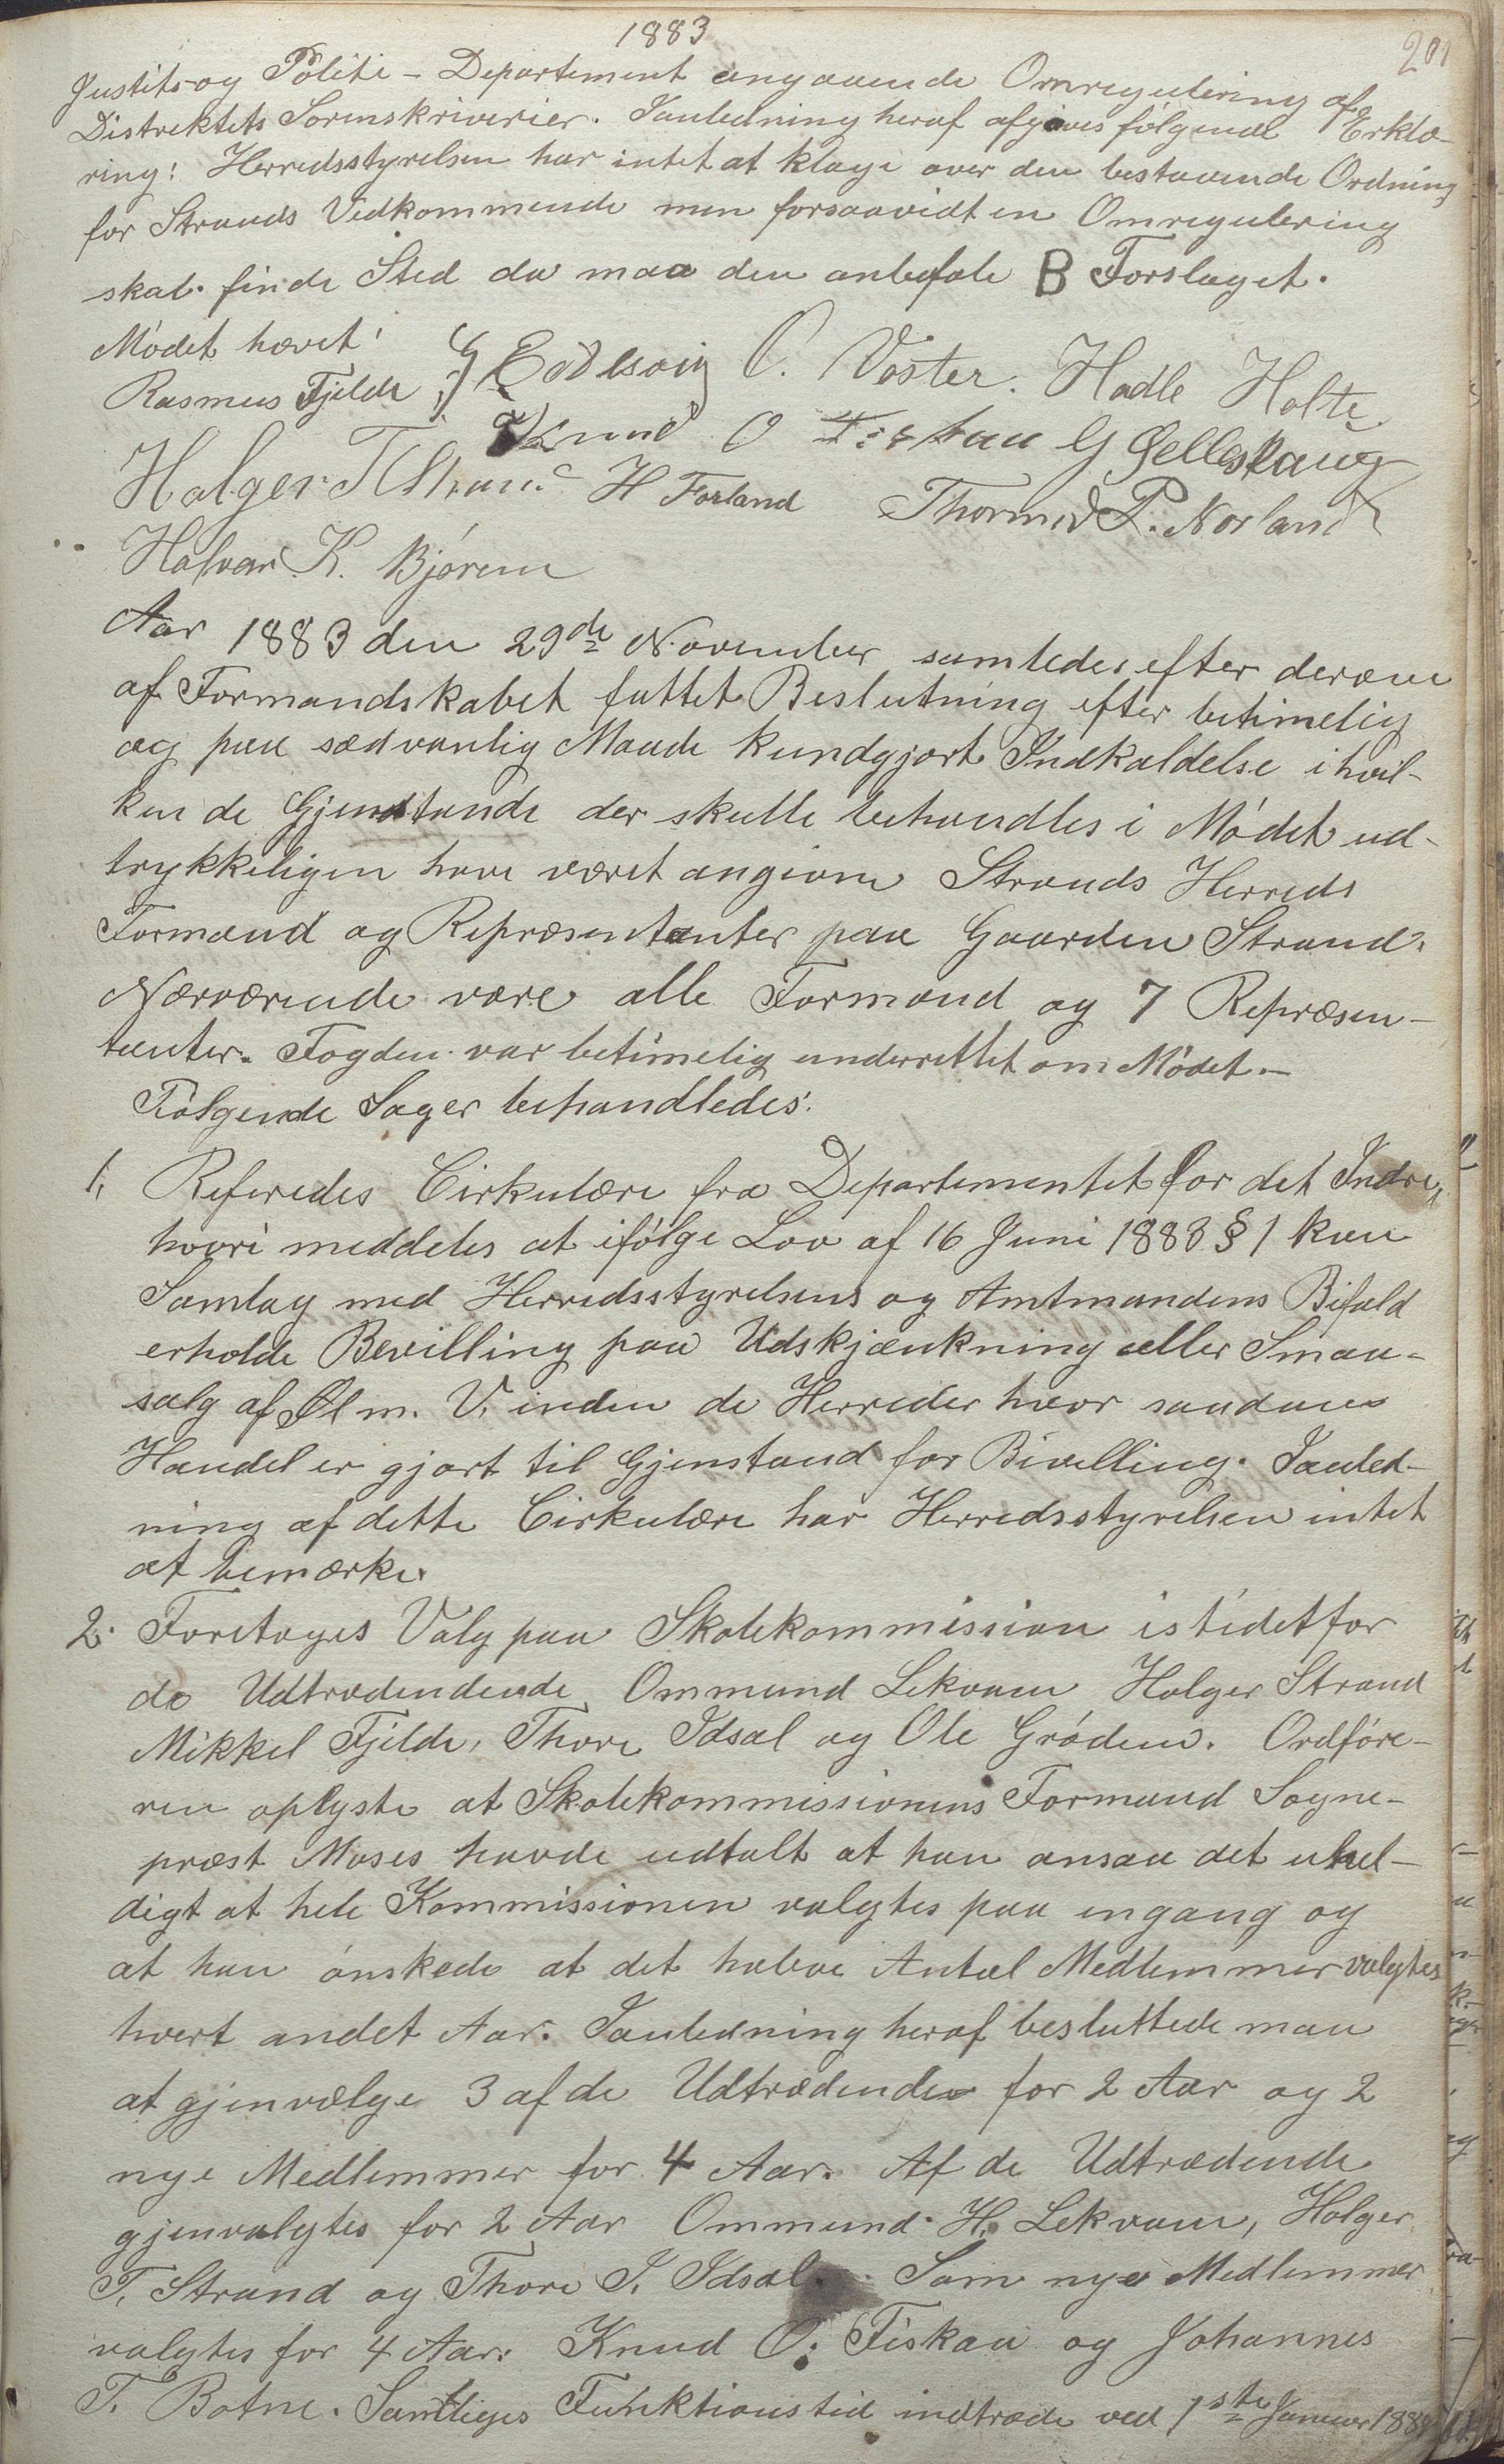 1883
201
Justits-og Politi-Departement angaaende Omregulering af
Distriktets Sorenskriverier. Ianledning heraf afgives følgende Erklæ-
ring: Herredsstyrelsen har intet at klage over den bestaaende Ordning
for Strands Vedkommende men forsaavidt en Omregulering
skal finde Sted da maa den anbefale B Forslaget.
Mødet hævet!
Rasmus Fjelde G Eidesvig O. Voster. Hadle Holte
Knud O Fiskaa G Gelleskaug
Holger T Strand H Forland Thormod P. Norland
Halvar K. Bjøreim
Aar 1883 den 29de November samledes efter derom
af Formandskabet fattet Beslutning efter betimelig
og paa sædvanlig Maade kundgjort Indkaldelse i hvil-
ken de Gjenstande der skulle behandles i Mødet ud-
trykkeligen have været angivne Strands Herreds
Formænd og Repræsentanter paa Gaarden Strand.
Nærværende vare alle Formænd og 7 Repræsen-
tanter. Fogden var betimelig underrettet om Mødet.-
Følgende Sager behandledes:
1. Referedes Cirkulære fra Departementet for det Indre,
hvori meddeles at ifølge Lov af 16 Juni 1883 § 1 kan
Samlag med Herredsstyrelsens og Amtmandens Bifald
erholde Bevilling paa Udskjænkning eller Smaa-
salg af Øl m. V. inden de Herreder hvor saadan
Handel er gjort til Gjenstand for Bevilling. Ianled-
ning af dette Cirkulære har Herredsstyrelsen intet
at bemærke.
2. Foretoges Valg paa Skolekommission istedetfor
de Udtrædendende Ommund Lekvam Holger Strand
Mikkel Fjelde, Thore Idsal og Ole Grøden. Ordføre-
ren oplyste at Skolekommissionens Formand Sogne-
præst Moses havde udtalt at han ansaa det uhel-
digt at hele Kommissionen valgtes paa engang og
at han ønskede at det halve Antal Medlemmer valgtes
hvert andet Aar. Ianledning heraf besluttede man
at gjenvælge 3 af de Udtrædende for 2 Aar og 2
nye Medlemmer for 4 Aar. Af de Udtrædende
gjenvalgtes for 2 Aar Ommund H. Lekvam, Holger
T. Strand og Thore I. Idsal. Som nye Medlemmer
valgtes for 4 Aar. Knud O. Fiskaa og Johannes
T. Botne. Samtliges Funktionstid indtræde ved 1ste Januar